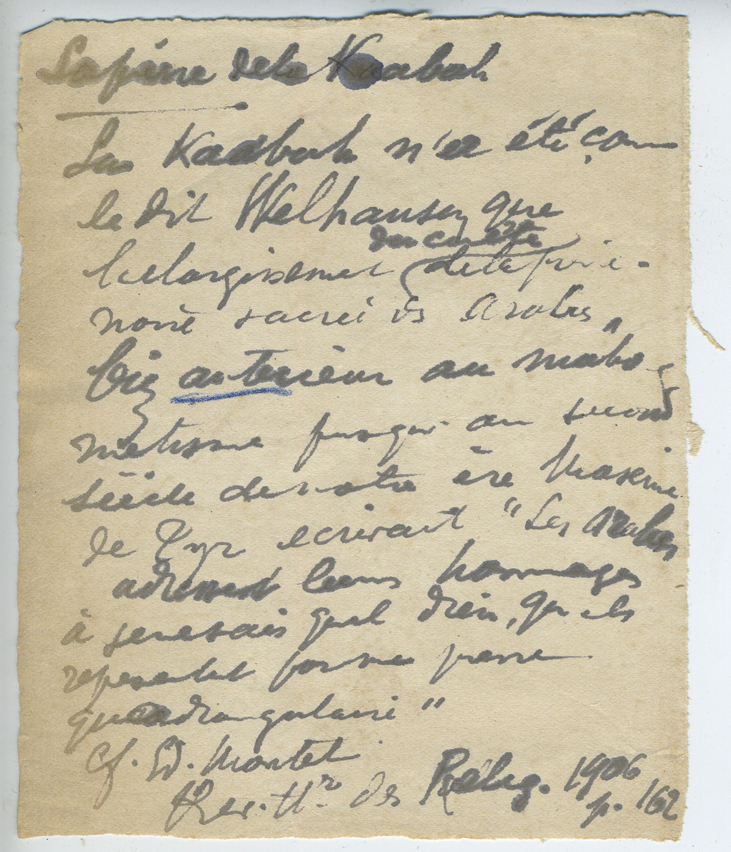 La pierre de la Kaabah
La Kaabah n'a été, com
le dit Welhausen, que
l'elargissement du culte de la pierre
noire sacrée des Arabes
bien anterieur au maho
metisme jusqu'au second
siècle de notre ère Maxime
de Tyr ecrivait "Les Arabes
adressent leurs hommages
à je ne sais quel dieu, qu'ils
representent par une pierre
quadrangulaire"
Cf. Ed. Montet
Rev. Hre des Relig. 1906
p. 162